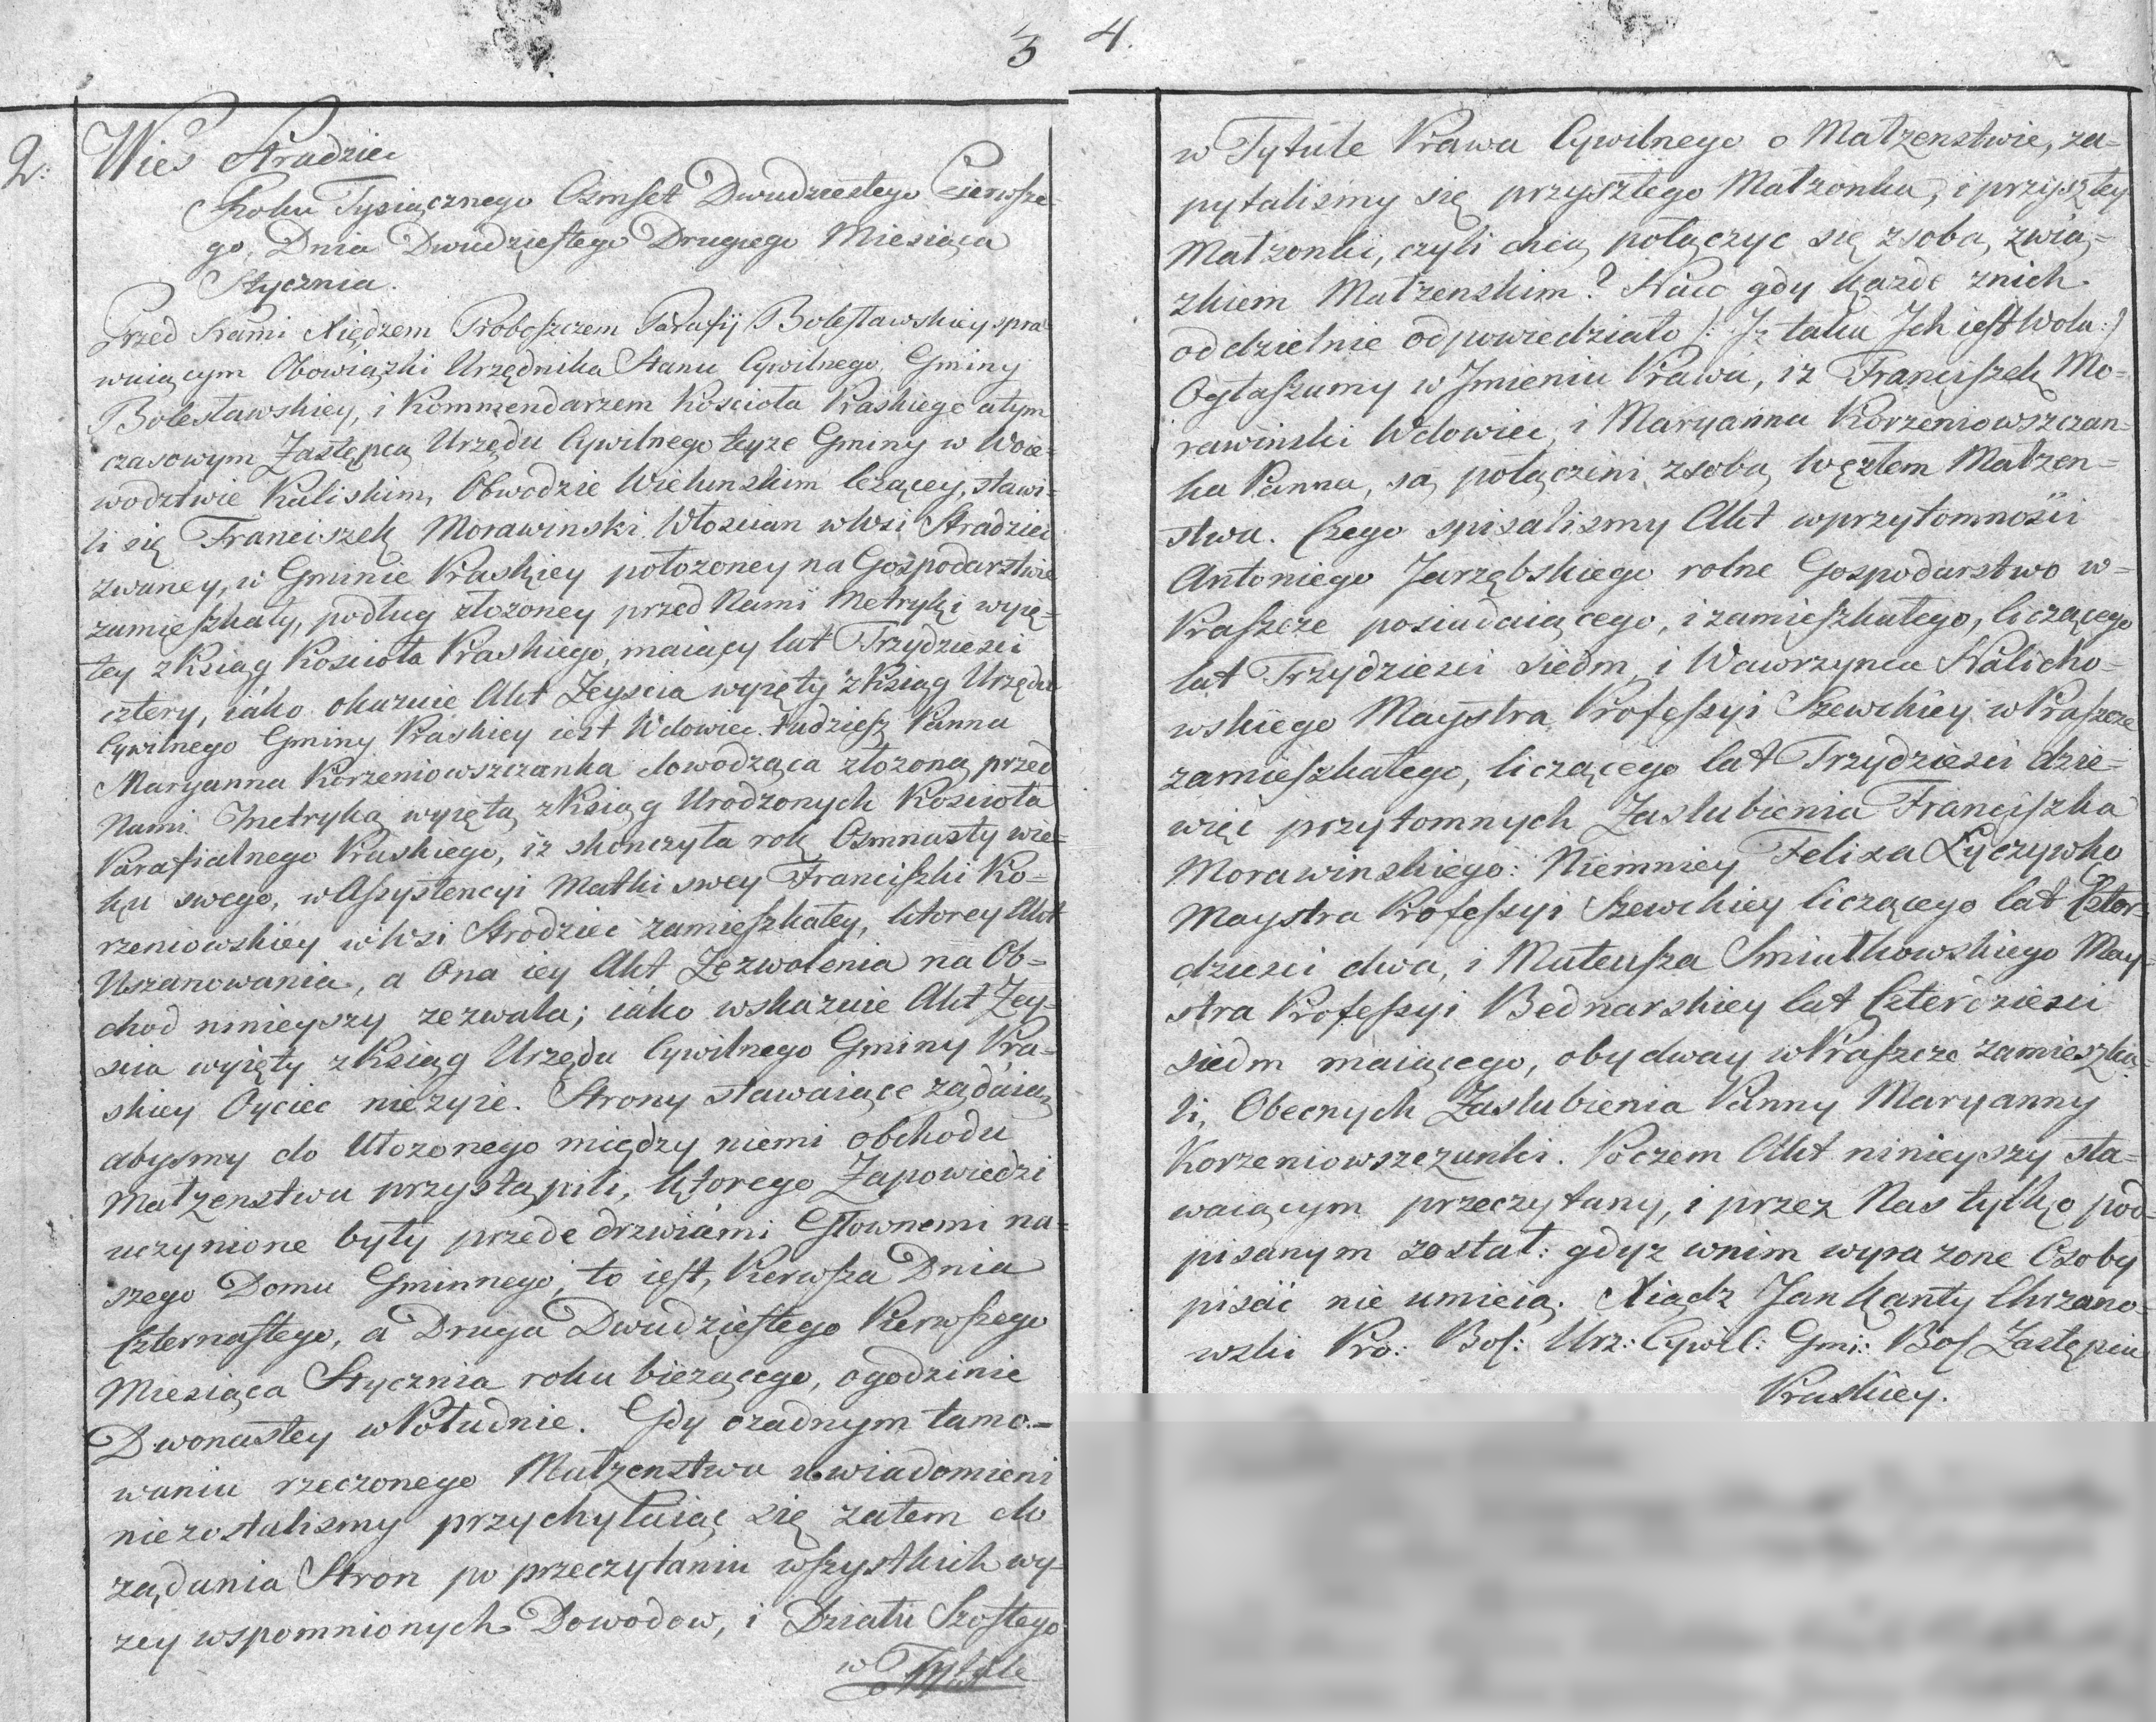 3
2: Wieś Stradziec
Roku Tysiącznego Osmset Dwudziestego Pierwsze-
go, Dnia Dwudziestego Drugiego Miesiąca
Stycznia.
Przed Nami Xiędzem Proboszczem Parafij Bolesławskiey spra-
wuiącym Obowiązki Urzędnika Stanu Cywilnego, Gminy
Bolesławskiey, i Kommendarzem Kościoła Praskiego a tym
czasowym Zastępcą Urzędu Cywilnego teyże Gminy w Woie-
wodztwie Kaliskim, Obwodzie Wielunskim leżącey, stawi-
li się Franciszek Morawinski Włoscian w Wsi Stradziec
zwaney, w Gminie Praskiey położoney na Gospodarstwie
zamieszkały, podług złożoney przed Nami Metryki wyię-
tey z Ksiąg Kościoła Praskiego, maiący lat Trzydzieści
cztery, iako okazuie Akt Zeyscia wyięty z Ksiąg Urzędu
Cywilnego Gminy Praskiey iest Wdowiec. tudziesz Panna
Maryanna Korzeniowszczanka dowodząca złożoną przed
Nami Metryką wyiętą z Ksiąg Urodzonych Kościoła
Parafialnego Praskiego, iż skonczyła rok Osmnasty wie-
ku swego, w Assystencyi Matki swey Franciszki Ko-
rzeniowskiey w Wsi Strodziec zamieszkałey, ktorey Akt
Uszanowania, a Ona iey Akt Zezwolenia na Ob-
chod ninieyszy zezwala; iako wskazuie Akt Zey-
scia wyięty z Ksiąg Urzędu Cywilnego Gminy Pra-
skiey Oyciec nieżyie. Strony stawaiące żądaią,
abysmy do Ułożonego między niemi obchodu
Małżenstwa przystąpili, którego Zapowiedzi
uczynione były przede drzwiami Głownemi na-
szego Domu Gminnego, to iest, Pierwsza Dnia
Czternastego, a Druga Dwudziestego Pierwszego
Miesiąca Stycznia roku bieżącego, o godzinie
Dwonastey w Południe. Gdy o żadnym tamo-
waniu rzeczonego Małżenstwa uwiadomieni
niezostalismy przychylaiąc się zatem do
żądania Stron po przeczytaniu wszystkich wy-
żey wspomnionych Dowodow, i Działu Szostego
w Tytule
4.
w Tytule Prawa Cywilnego o Małżenstwie, za-
pytalismy się przyszłego Małżonka, i przyszłey
Małżonki, czyli chcą połączyc się z sobą, zwią-
zkiem Małżenskim? Na co gdy każde z nich
oddzielnie odpowiedziało /: Iż taka Jch iest Wola :/
Ogłaszamy w Jmieniu Prawa, iż Franciszek Mo-
rawinski Wdowiec, i Maryanna Korzeniowszczan-
ka Panna, są połączeni z sobą węzłem Małżen-
stwa. Czego spisalismy Akt w przytomności
Antoniego Jarzębskiego rolne Gospodarstwo w-
Praszce posiadaiącego, i zamieszkałego, liczącego
lat Trzydzieści siedm, i Wawrzynca Kalicho-
wskiego Maystra Professyi Szewckiey w Praszce
zamieszkałego, liczącego lat Trzydzieści dzie-
więć przytomnych Zaslubienia Franciszka
Morawinskiego: Niemniey Felixa Łyczywko
Maystra Professyi Szewckiey liczącego lat Czter-
dzieści dwa, i Mateusza Smiatkowskiego May-
stra Professyi Bednarskiey lat Czterdzieści
siedm maiącego, obydway w Praszce zamieszka-
li, Obecnych Zaslubienia Panny Maryanny
Korzeniowszczanki. Poczem Akt ninieyszy sta-
waiącym przeczytany, i przez Nas tylko pod-
pisanym został: gdyż w nim wyrażone Osoby
pisać nie umieią. Xiądz Jan Kanty Chrzano-
wski Pro: Bol: Urz: Cywil: Gmi: Bol Zastępca
Praskiey.